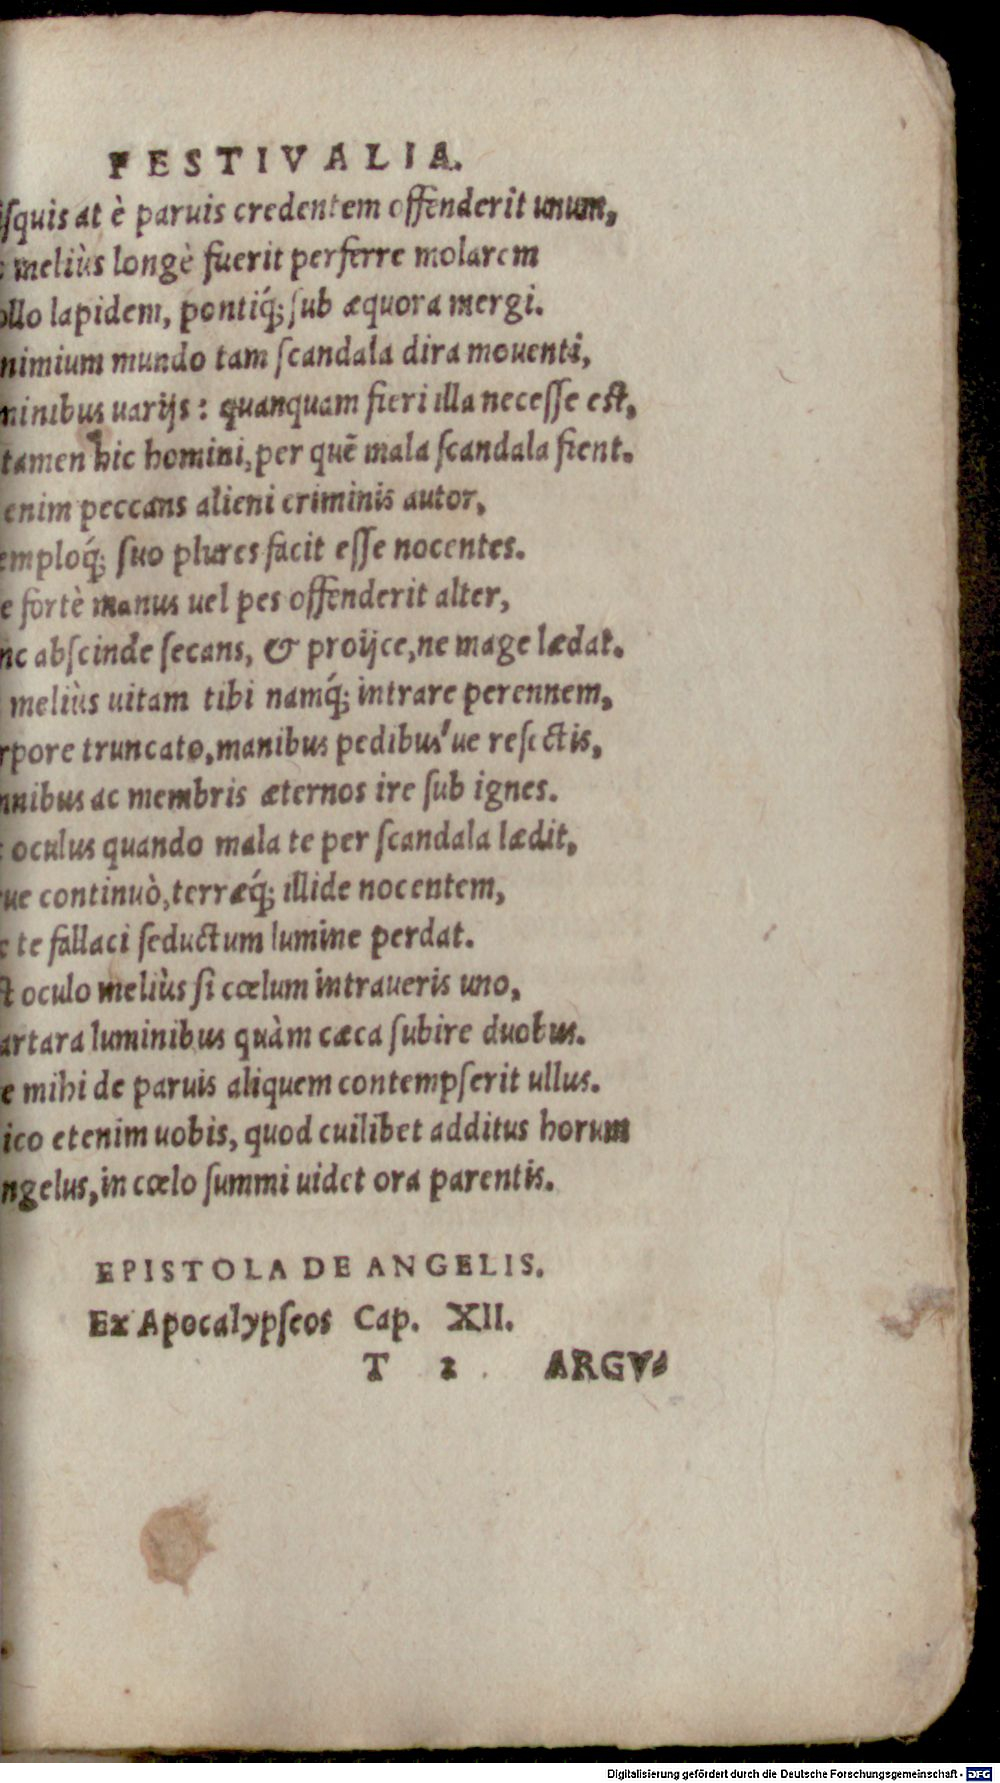 FESTIVALIA.
ſquis at è paruis credentem offenderit unum,
meliùs longè fuerit perferre molarem
ollo lapidem, pontiq́; ſub æquora mergi.
nimium mundo tam ſcandala dira mouenti,
minibus uarijs: quanquam fieri illa neceſſe eſt,
tamen hic homini, per quē mala ſcandala fient.
enim peccans alieni criminis autor,
emploq́; ſuo plures facit eſſe nocentes.
e fortè manus uel pes offenderit alter,
nc abſcinde ſecans, & proijce, ne mage lædat.
meliùs uitam tibi namq́; intrare perennem,
rpore truncato, manibus pedibus'ue reſectis,
nnibus ac membris æternos ire ſub ignes.
oculus quando mala te per ſcandala lædit,
ue continuò, terræq́; illide nocentem,
c te fallaci ſeductum lumine perdat.
ſt oculo meliùs ſi cœlum intraueris uno,
artara luminibus quàm cæca ſubire duobus.
e mihi de paruis aliquem contempſerit ullus.
ico etenim uobis, quod cuilibet additus horum
ngelus, in cœlo ſummi uidet ora parentis.
EPISTOLA DE ANGELIS.
Ex Apocalypſeos Cap. XII.
T 2 ARGV-
Digitalisierung gefördert durch die Deutsche Forschungsgemeinschaft - DFG